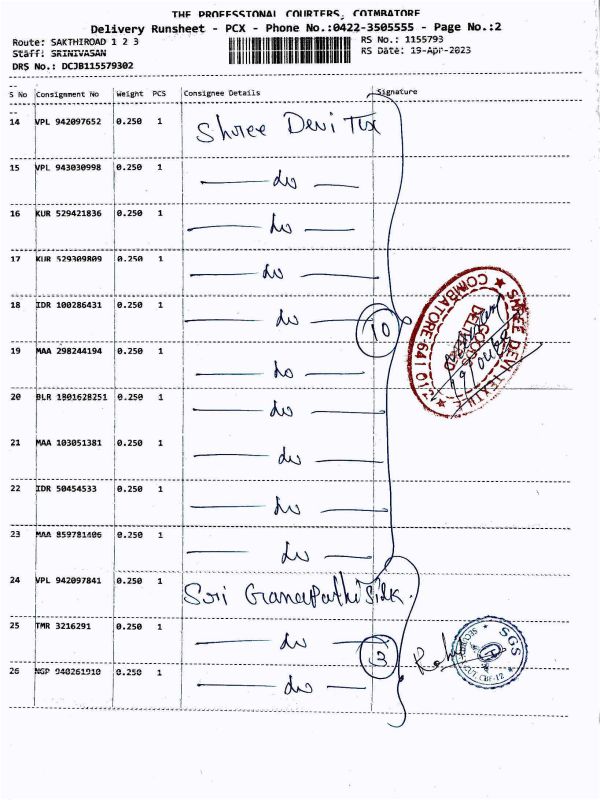 THE PROFESSIONAL COURIERS, COIMBATORE
Delivery Runsheet - PCX - Phone No.:0422-3505555 - Page No.:2
Route: SAKTHIROAD 1 2 3 RS No.: 1155793
Staff: SRINIVASAN RS Date: 19-Apr-2023
DRS No.: DCJB115579302
S No Consignment No Weight PCS Consignee Details Signature
14 VPL 942097652 0.250 1 Shree Devi Tex
15 VPL 943030998 0.250 1 — do —
16 KUR 529421836 0.250 1 — do —
17 KUR 529309809 0.250 1 — do —
18 IDR 100286431 0.250 1 — do — 10
19 MAA 298244194 0.250 1 — do —
20 BLR 1801628251 0.250 1 — do —
21 MAA 103051381 0.250 1 — do —
22 IDR 50454533 0.250 1 — do —
23 MAA 859781406 0.250 1 — do —
24 VPL 942097841 0.250 1 Sri Ganapathi Silk.
25 TMR 3216291 0.250 1 — do — 3
26 NGP 940261910 0.250 1 — do —
SHREE DEVI TEXTILE
COIMBATORE-641 012
GOODS
DELIVERED
SGS
CBE-12